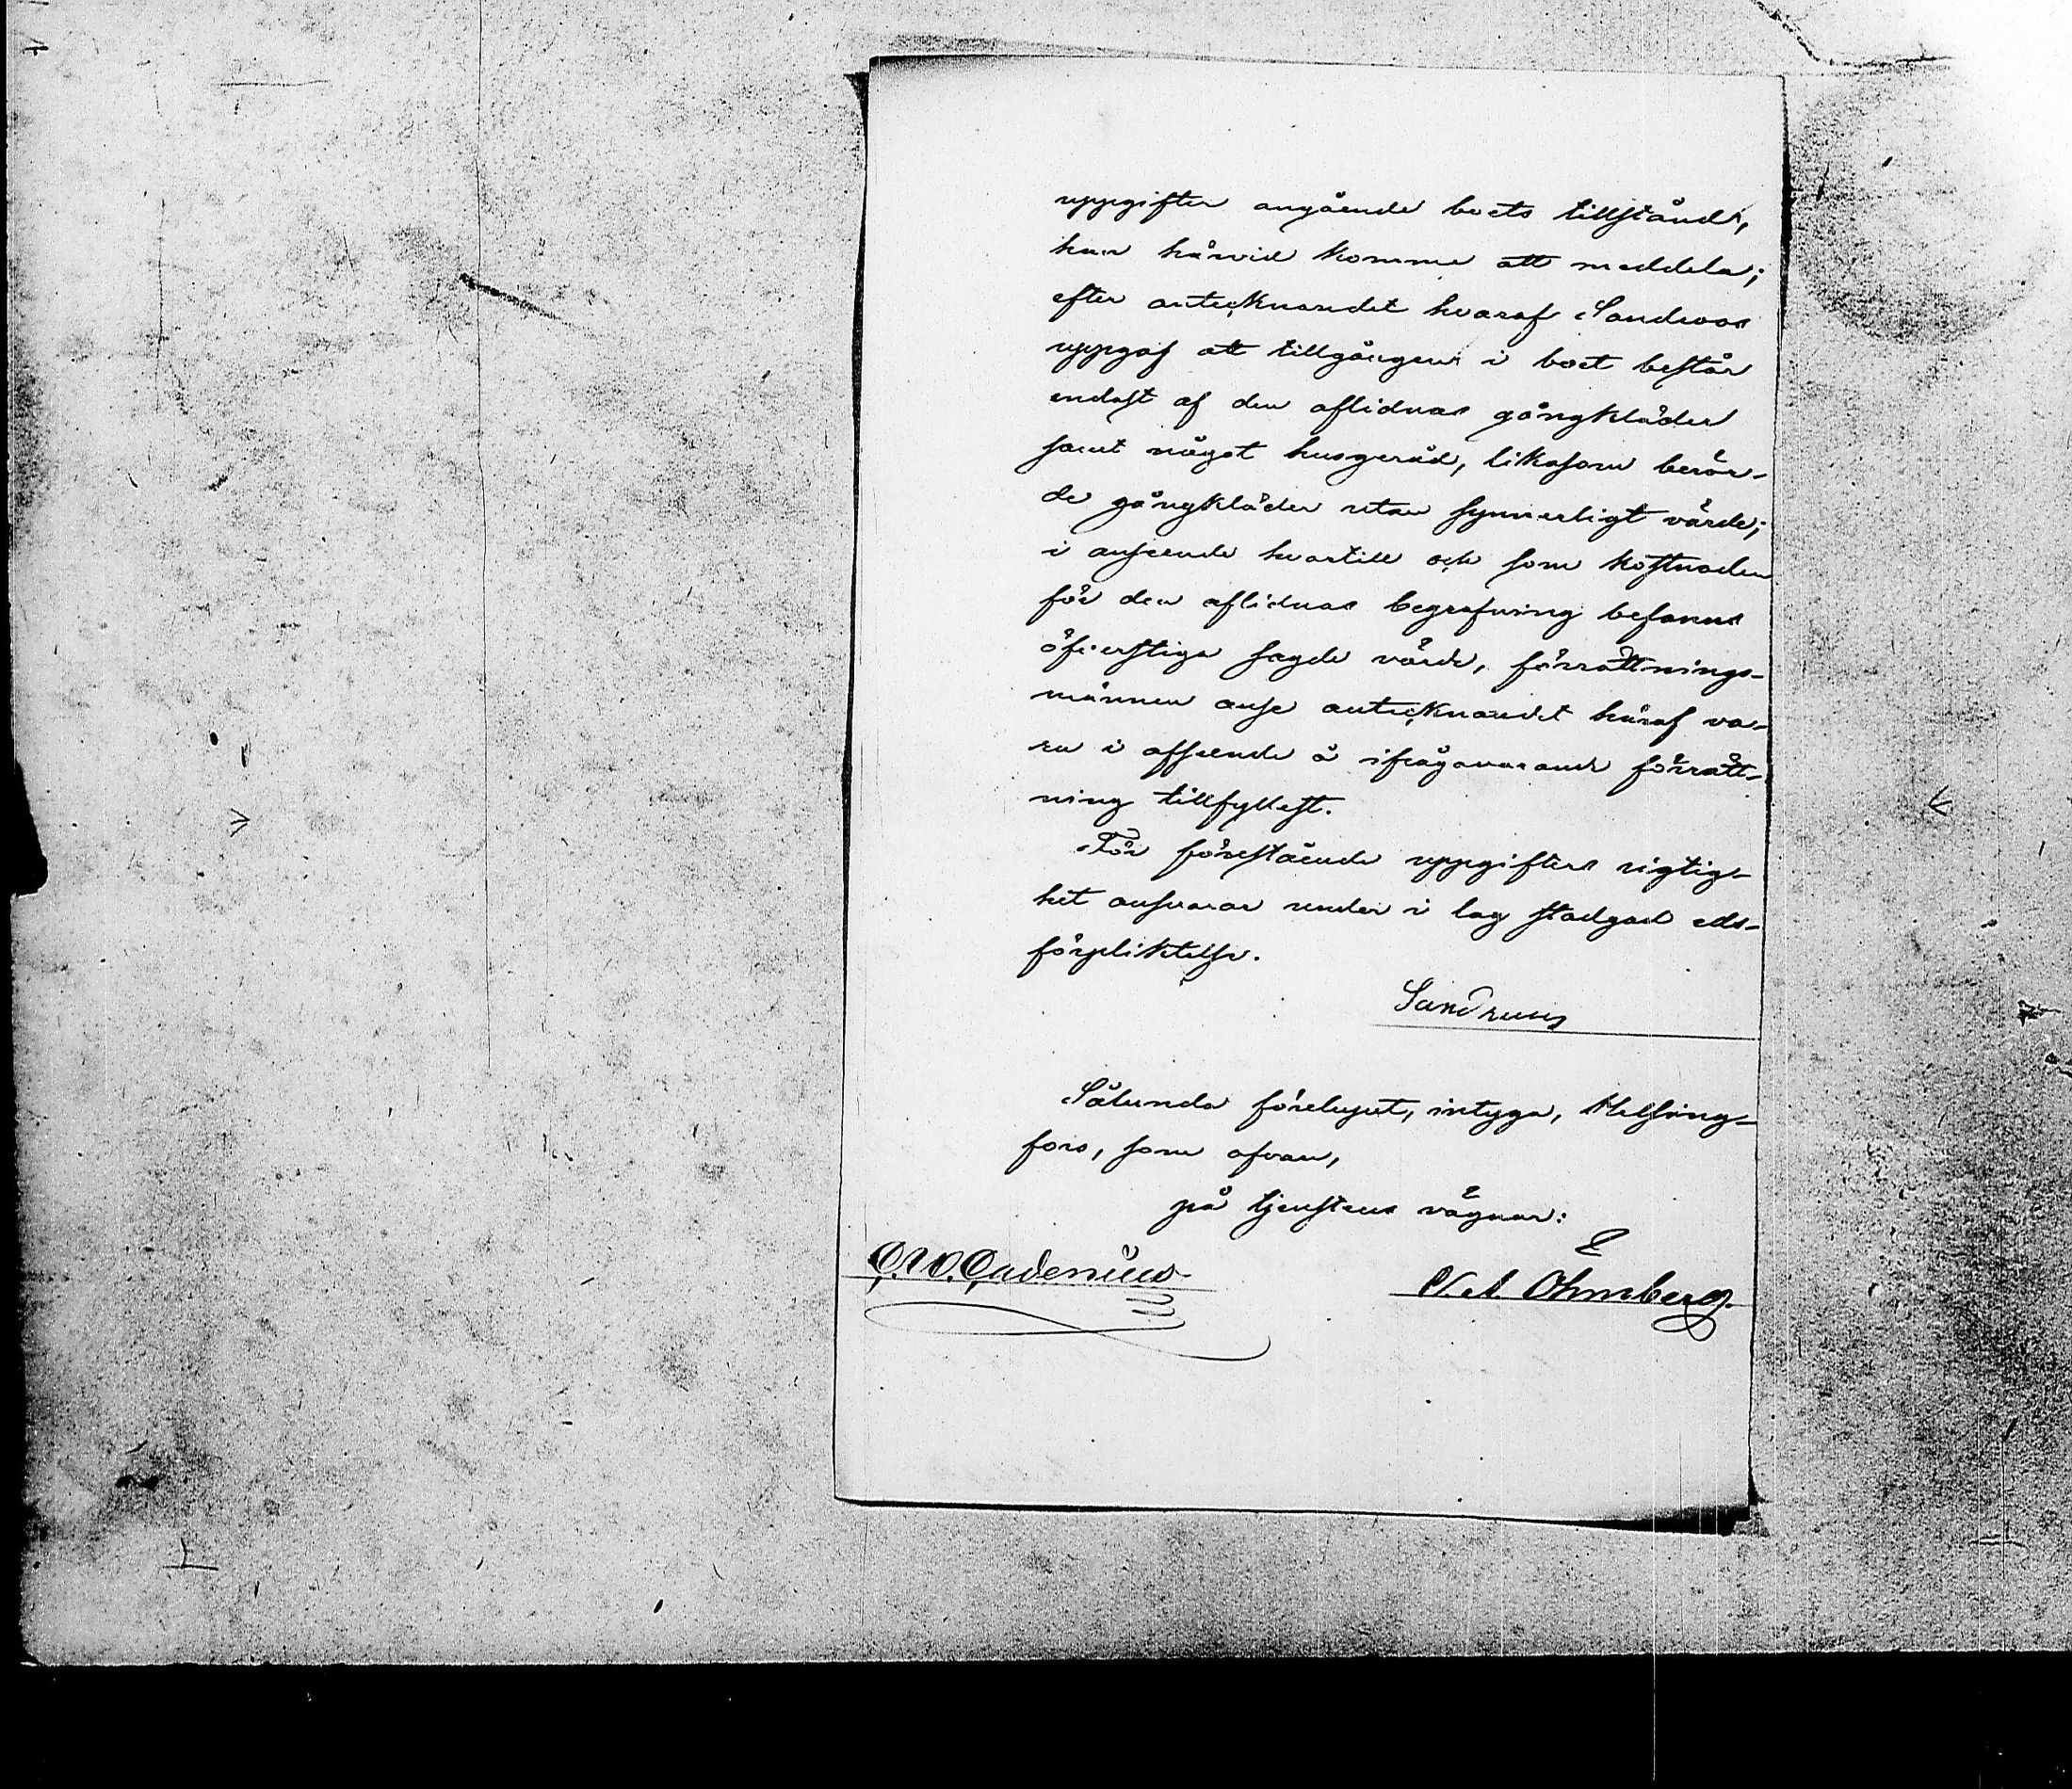 uppgifter angående boets tillstånd,
han härvid komme att meddela;
efter antecknandet hvaraf Sandroos
uppgaf att tillgången i boet består
endast af den aflidnas gångkläder
samt något husgeråd, liksom berör-
de gångkläder utan synnerligt värde;
i anseende hvartill och som kostnaden
för den aflidnas begrafning befanns
öfverstiga sagde värde, förrättnings-
männen anse antecknandet häraf va-
ra i afseende å ifrågavarande förrätt-
ning tillfyllest.
För förestående uppgifters rigtig-
het ansvarar under i lag stadgad eds-
förpliktelse.
Sandroos
Sålunda förelupet, intyga, Helsing-
fors, som ofvan,
på tjenstens vägnar:
C. W. Cadenius.
V. A. Öhmberg.